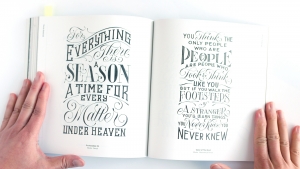 For
EVERYTHING
There
is a
SEASON
A TIME FOR
EVERY
Matter
UNDER HEAVEN
YOU Think THE
ONLY PEOPLE
WHO ARE
PEOPLE
ARE PEOPLE WHO
Look & Think
LIKE YOU
BUT IF YOU WALK THE
FOOTSTEPS
OF
A STRANGER
YOU'LL LEARN THINGS
You Never Knew YOU
NEVER KNEW